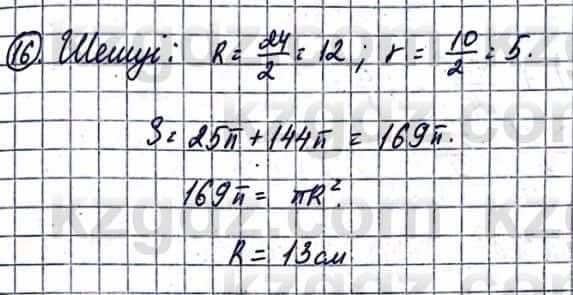 16. Шешуі: R = 24/2 = 12; r = 10/2 = 5.
S = 25π + 144π = 169π.
169π = πR².
R = 13 см
kzgdz.com